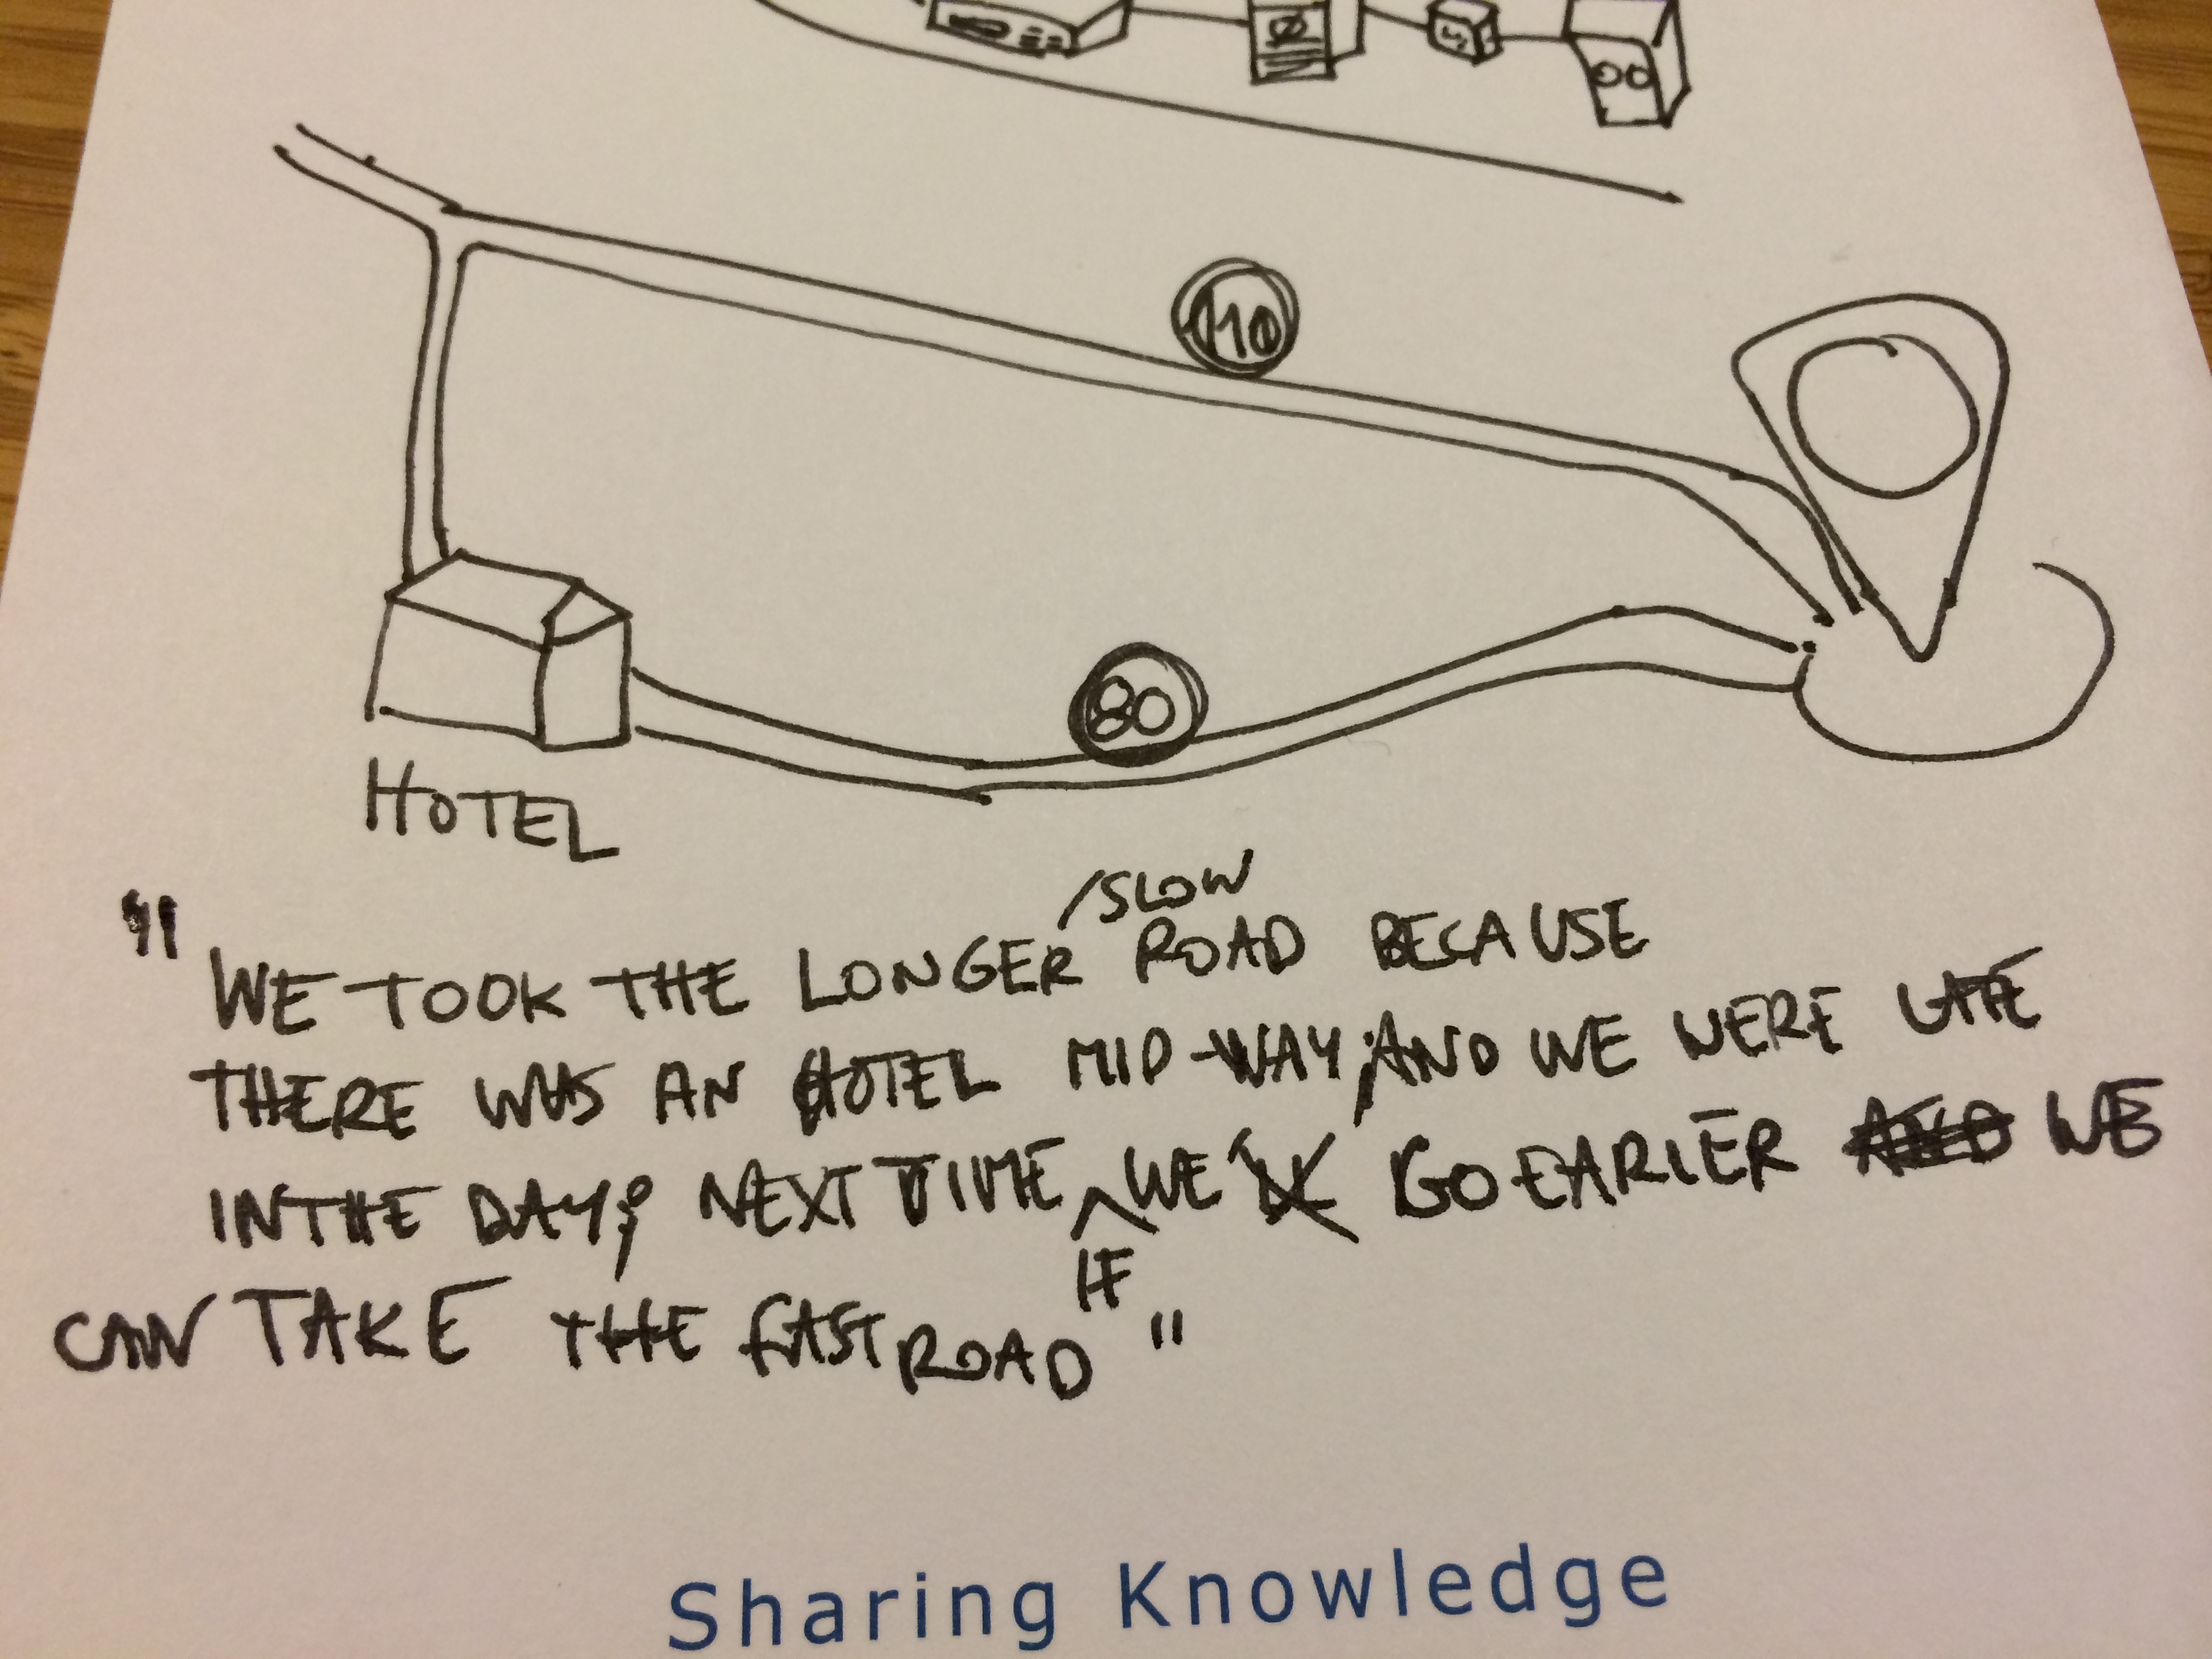 110
80
HOTEL
"WE TOOK THE LONGER /SLOW ROAD BECAUSE
THERE WAS AN HOTEL MID-WAY, AND WE WERE LATE
IN THE DAY; NEXT TIME IF WE GO EARLIER WE
CAN TAKE THE FAST ROAD"
Sharing Knowledge